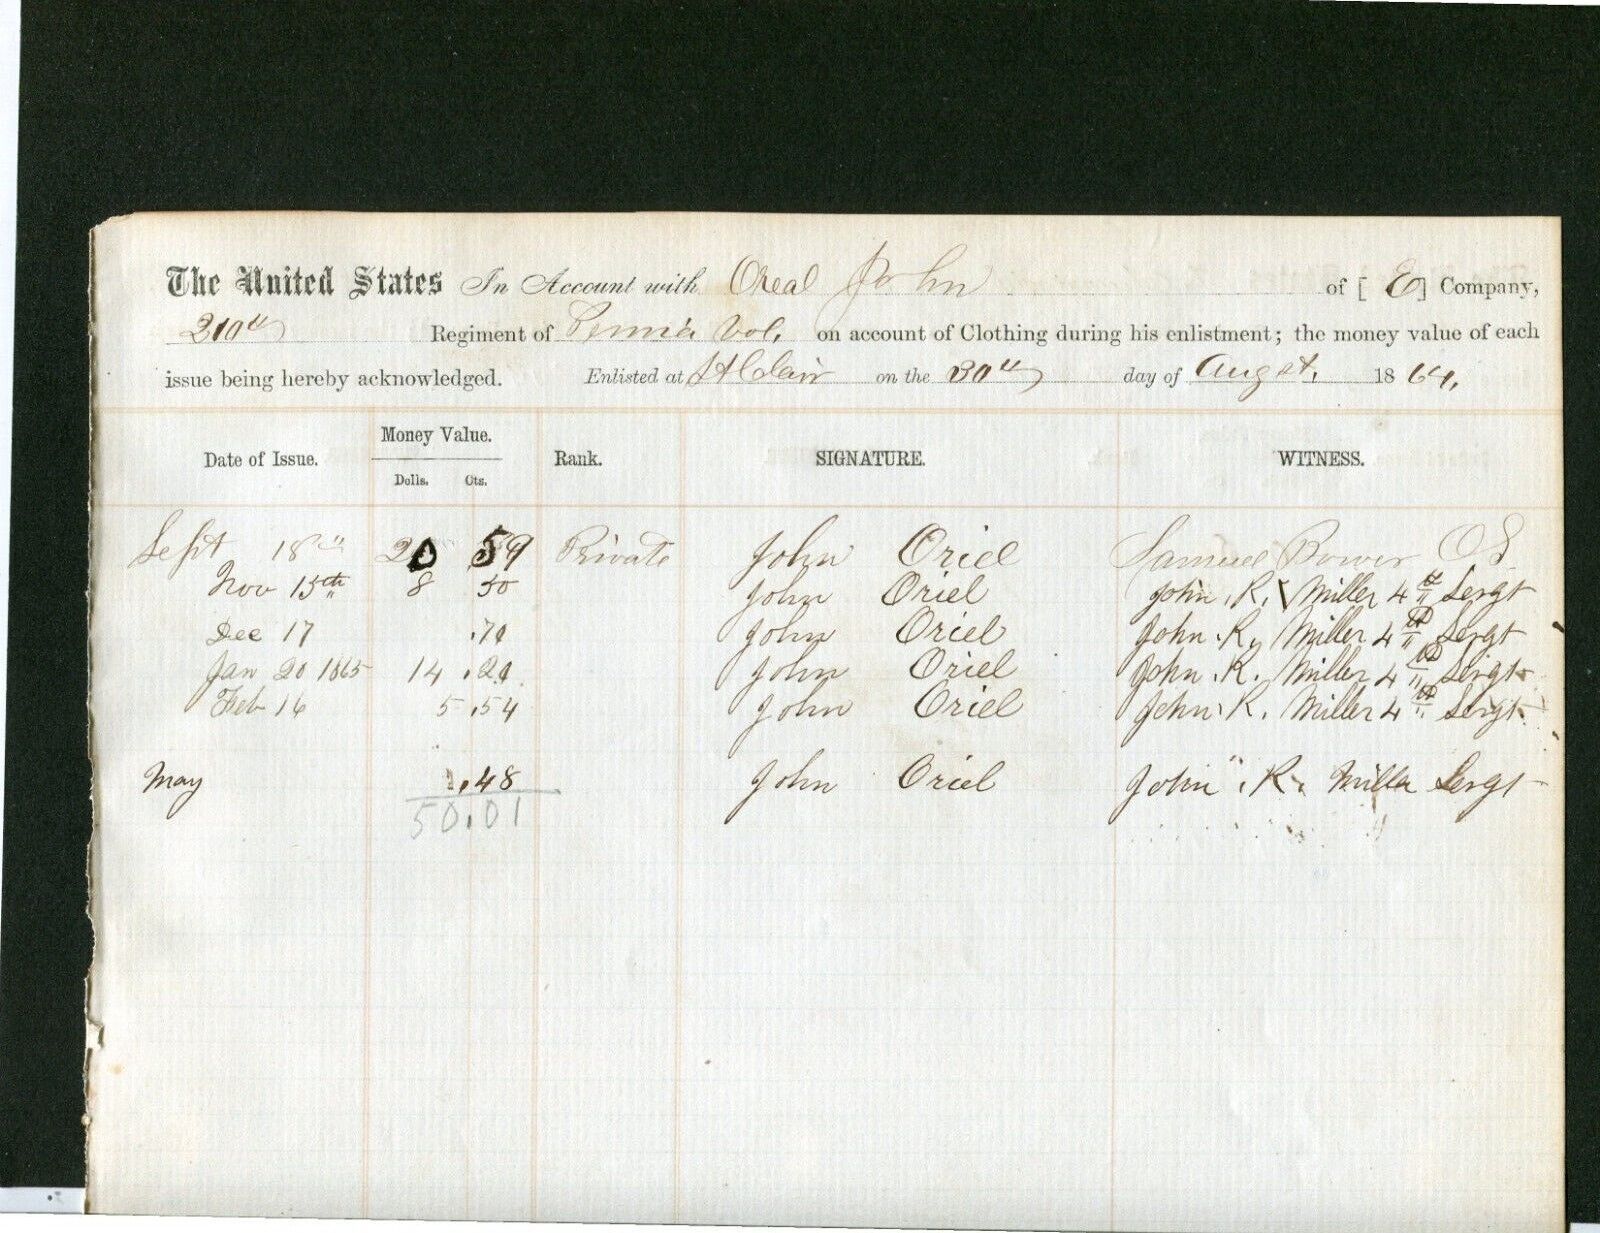 The United States In Account with Oreal John of [ E ] Company,
210th Regiment of Penn'a Vol. on account of Clothing during his enlistment; the money value of each
issue being hereby acknowledged. Enlisted at St Clair on the 30th day of Augst. 18 64.
Date of Issue. Money Value. Dolls. Cts. Rank. SIGNATURE. WITNESS.
Sept 18th 20 59 Private John Oriel Samuel Bower OS
Nov 15th 8 50 John Oriel John. R. Miller 4th Sergt
Dec 17 .70 John Oriel John. R. Miller 4th Sergt
Jan 20 1865 14 .20 John Oriel John. R. Miller 4th Sergt
Feb 16 5 .54 John Oriel John. R. Miller 4th Sergt
May .48 John Oriel John. R. Miller Sergt
50.01